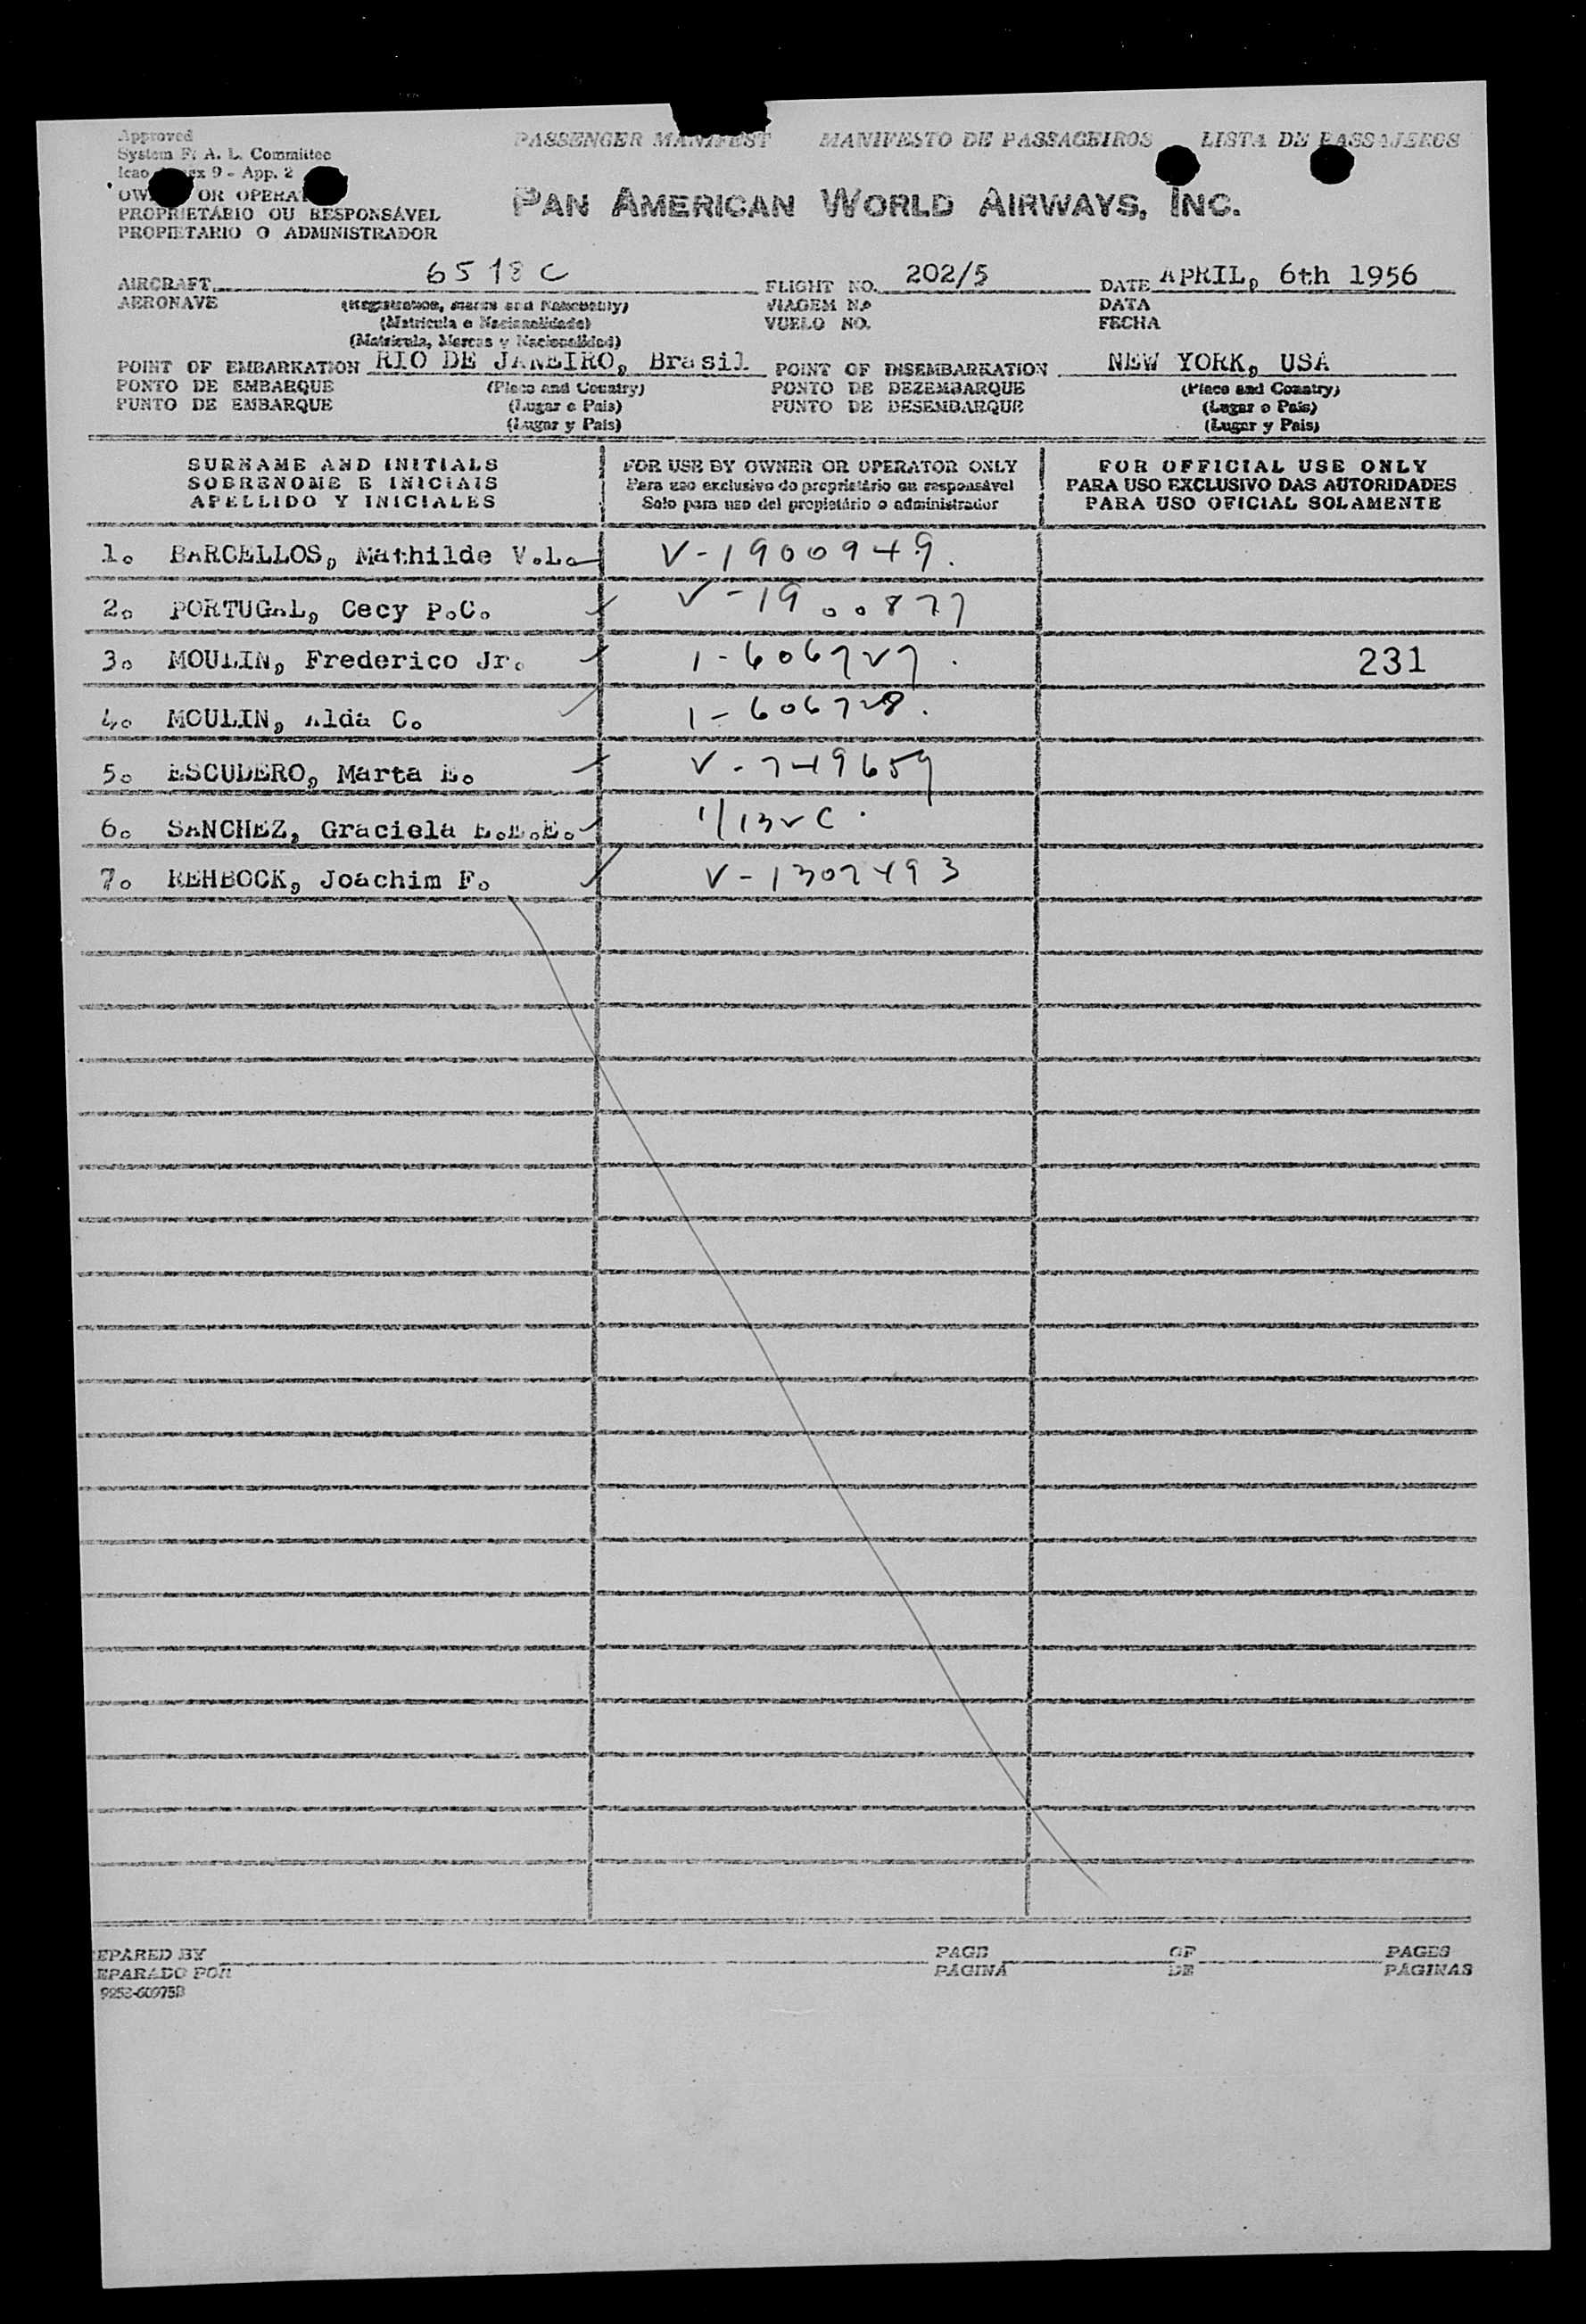 Approved
PASSENGER MANIFEST MANIFESTO DE PASSAGEIROS LISTA DE PASSAJEROS
System F. A. L. Committee
Icao 9 - App. 2
OR
PROPRIETÁRIO OU RESPONSÁVEL
PROPIETARIO O ADMINISTRADOR
PAN AMERICAN WORLD AIRWAYS, INC.
AIRCRAFT 6518C FLIGHT NO. 202/5 DATE APRIL, 6th 1956
AERONAVE (Registration, marks and Nationality) VIAGEM N.º DATA
(Matricula e Nacionalidade) VUELO NO. FECHA
(Matricula, Marcas y Nacionalidad)
POINT OF EMBARKATION RIO DE JANEIRO, Brasil POINT OF DISEMBARKATION NEW YORK, USA
PONTO DE EMBARQUE (Place and Country) PONTO DE DEZEMBARQUE (Place and Country)
PUNTO DE EMBARQUE (Lugar e Pais) PUNTO DE DESEMBARQUE (Lugar e Pais)
(Lugar y Pais) (Lugar y Pais)
SURNAME AND INITIALS FOR USE BY OWNER OR OPERATOR ONLY FOR OFFICIAL USE ONLY
SOBRENOME E INICIAIS Para uso exclusivo do proprietário ou responsável PARA USO EXCLUSIVO DAS AUTORIDADES
APELLIDO Y INICIALES Solo para uso del propietário o administrador PARA USO OFICIAL SOLAMENTE
1. BARCELLOS, Mathilde V.L. V-1900949.
2. PORTUGAL, Cecy P.C. V-1900877
3. MOULIN, Frederico Jr. 1-606727. 231
4. MOULIN, Alda C. 1-606728.
5. ESCUDERO, Marta E. V-749659
6. SANCHEZ, Graciela E.E.E.
7. REHBOCK, Joachim F. V-1307493
EPARED BY PAGE OF PAGES
EPARADO POR PÁGINA DE PÁGINAS